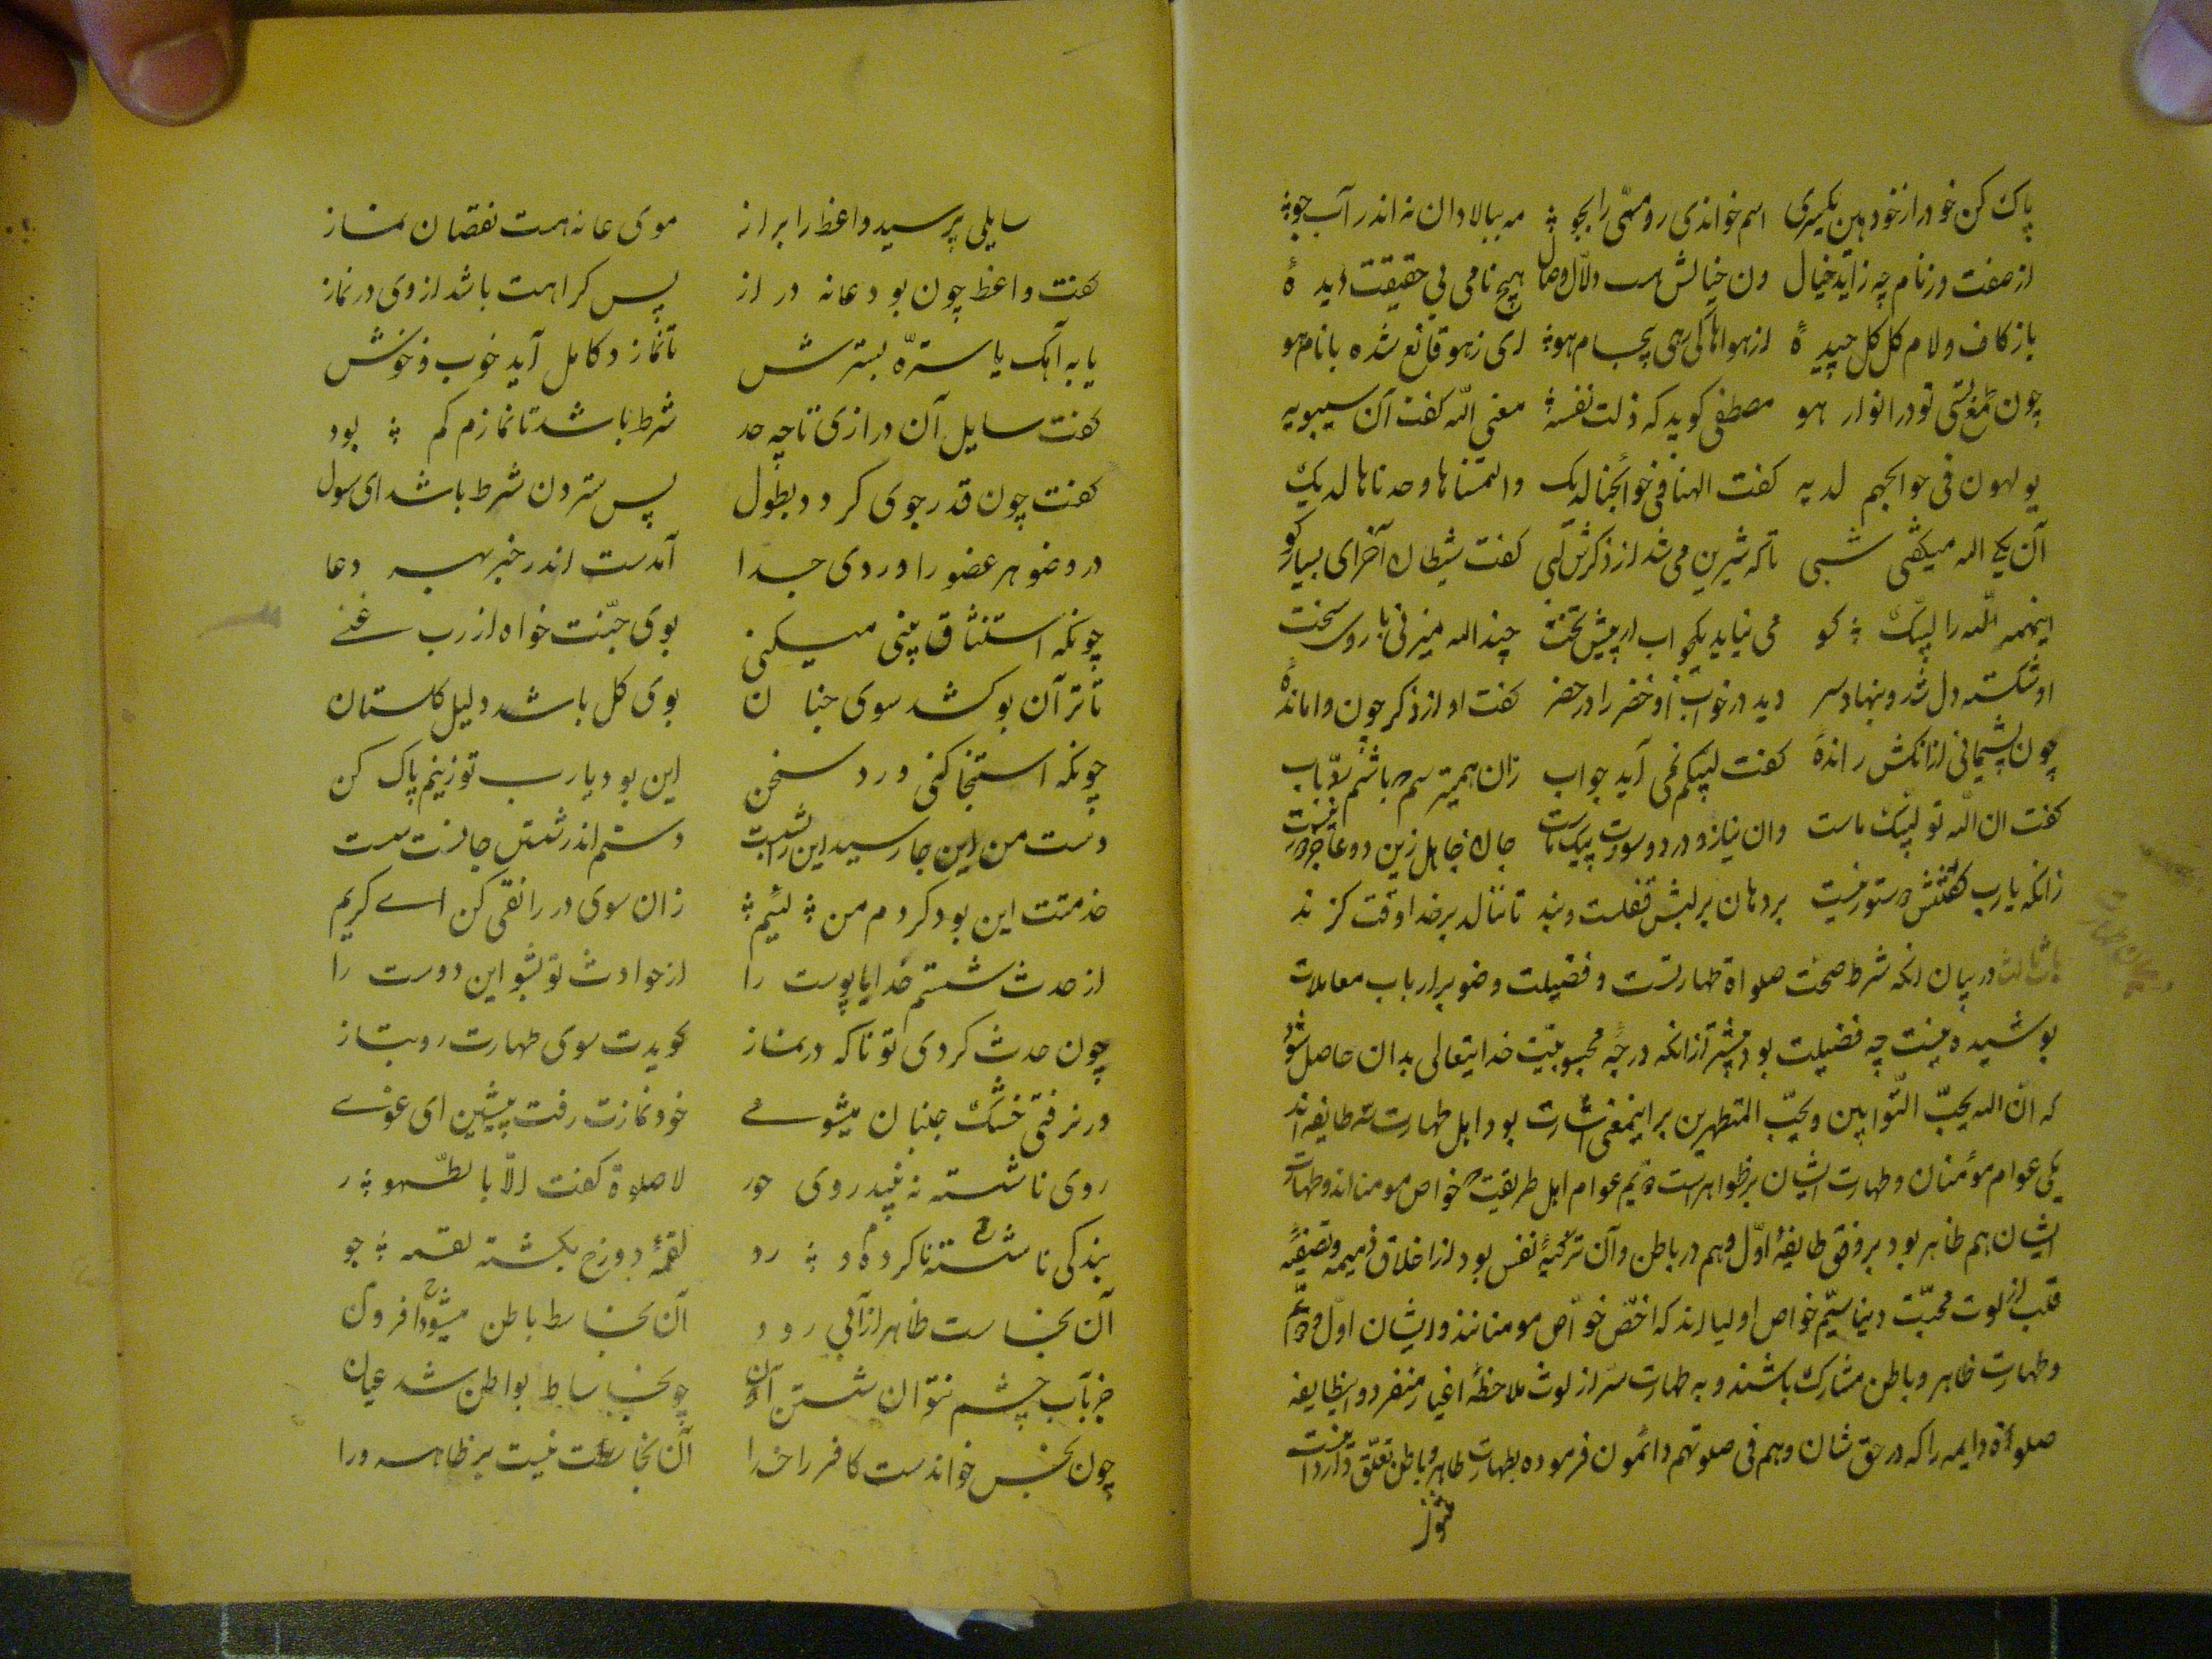 پاک کن خود را از خود هین یکسری اسم خواندی رو مسمّی را بجو مه ببالا دان نه اندر آب جو
از صفت وز نام چه زاید خیال ون خیالش هست دلّال وصال هیچ نامی بی حقیقت دیدهٔ
یا ز کاف و لام گل گل چیدهٔ از هواها کی رهی بی جام هو ای ز هو قانع شده با نام هو
چون تو در انوار هو مصطفی گوید که ذلت نفسه معنی الله گفت آن سیبویه
یولهون فی حوائجهم لدیه گفت الهنا فی حوائجنا الیک والتمسناها وجدناها لدیک
آن یکی الله میگفتی شبی تا که شیرین می شد از ذکرش لبی گفت شیطان آخر ای بسیار گو
اینهمه الله را لبّیک کو می نیاید یک جواب از پیش تخت چند الله میزنی با روی سخت
او شکسته دل شد و بنهاد سر دید در خواب او خضر را در خضر گفت او از ذکر چون واماندهٔ
چون پشیمانی از آنکش خواندهٔ گفت لبّیکم نمی آید جواب زان همی ترسم که باشم ردّ باب
گفت ان الله تو لبّیک ماست وان نیاز و درد و سوزت پیک ماست جان جاهل زین دعا جز دور نیست
زانکه یارب گفتنش دستور نیست بر دهان بر لبش قفلست و بند تا ننالد بر خدا وقت گزند
در بیان آنکه شرط صحّت صلواة طهارتست و فضیلت وضو بر ارباب معاملات
پوشیده نیست چه فضیلت بود بیشتر از آنکه درجهٔ محبوبیّت خدایتعالی بدان حاصل شود
که انّ الله یحبّ التّوابین و یحبّ المتطهرین بر اینمعنی اشارت بود اهل طهارت سه طایفه اند
یکی عوام مؤمنان و طهارت ایشان بر ظواهر است دویم عوام اهل طریقت که خواص مومنانند و طهارت
ایشان هم ظاهر بود بر وفق طایفهٔ اوّل و هم در باطن و آن تزکیهٔ نفس بود از اخلاق ذمیمه و تصفیهٔ
قلب از لوث محبّت دنیا سیّم خواص اولیا اند که اخصّ خواّص مومنانند و ایشان اوّل و دویم
و طهارت ظاهر و باطن مشارک باشند و به طهارت سرّ از لوث ملاحظهٔ اغیار منفرد و اینطایفه
صلوة دایمه را که در حق شان و هم فی صلوتهم دائمون فرموده بطهارت ظاهر و باطن تعلّق دارد
سایلی پرسید واعظ را براز موی عانه هست نقصان نماز
گفت واعظ چون بود عانه دراز پس کراهت باشد از وی در نماز
یا به آهک یا ستره بسترش تا نمازد کامل آید خوب و خوش
گفت سایل آن درازی تا چه حد شرط باشد تا نمازم کم بود
گفت چون قدر جوی گردد بطول پس ستردن شرط باشد ای سول
در وضو هر عضو را وردی جدا آمدست اندر خبر بهر دعا
چونکه استنشاق بینی میکنی بوی جنّت خواه از رب غنی
تا ترا آن بو کشد سوی جنان بوی گل باشد دلیل گلستان
چونکه استنجا کنی ورد سخن این بود یا رب تو زینم پاک کن
دست من این جا رسید این را بشست دستم اندر شستن جانست سست
خدمتت این بود کردم من لئیم زان سوی در را نقی کن اے کریم
از حدث شستم خدایا پوست را از حوادث تو بشو این دوست را
چون حدث کردی تو ناگه در نماز گویدت سوی طهارت رو بتاز
ور نرفتی خشک جنبان میشوے خود نمازت رفت پیشین ای غوے
روی ناشسته نه بیند روی حور لا صلوة گفت الّا بالطّهور
لقمهٔ دوزخ بگشته لقمه جو
آن نجاست ظاهر از آبی رود آن نجاست باطن میشود افزون
جز بآب چشم نتوان شستن آن چو نجاسات بواطن شد عیان
چون نجس خواندست کافر را خدا آن نجاست نیست بر ظاهر ورا